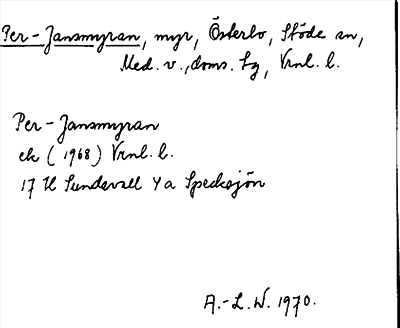 Per-Jansmyran, myr, Österbo, Stöde sn,
Med. v., doms. tg, Vrnl. l.
Per-Jansmyran
ek (1968) Vrnl. l.
17 H Sundsvall 4 a Specksjön
A.-L. W. 1970.